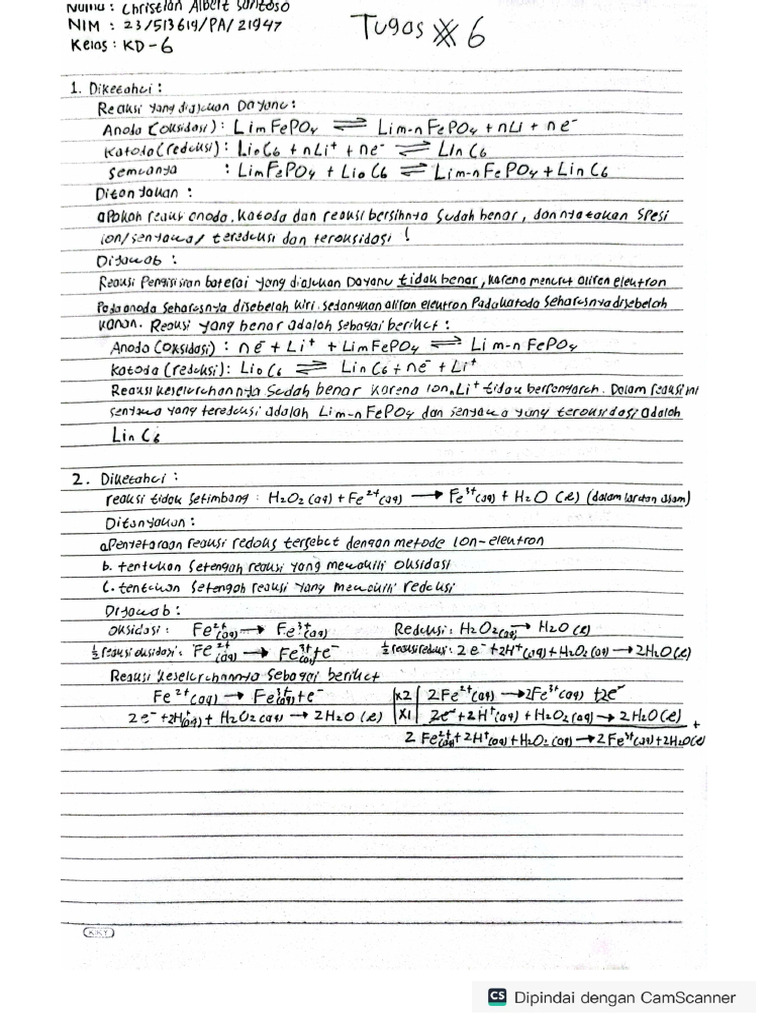 Nama : Christian Albert Santoso
NIM : 23/513619/PA/21947
Kelas : KD-6
Tugas 6
1. Diketahui :
Reaksi yang diajukan Dayanu :
Anoda (oksidasi) : LimFePO4 ⇌ Lim-nFePO4 + nLi + ne⁻
Katoda (reduksi) : Li0C6 + nLi⁺ + ne⁻ ⇌ LinC6
Semuanya : LimFePO4 + Li0C6 ⇌ Lim-nFePO4 + LinC6
Ditanyakan :
apakah reaksi anoda, katoda dan reaksi bersihnya sudah benar, dan nyatakan spesi
ion/senyawa/ tereduksi dan teroksidasi !
Dijawab :
Reaksi pengisian baterai yang diajukan Dayanu tidak benar, karena menurut aliran elektron
Pada anoda seharusnya disebelah kiri. sedangkan aliran elektron Pada katoda seharusnya disebelah
kanan. Reaksi yang benar adalah sebagai berikut :
Anoda (oksidasi) : ne⁻ + Li⁺ + LimFePO4 ⇌ Lim-nFePO4
Katoda (reduksi) : Li0C6 ⇌ LinC6 + ne⁻ + Li⁺
Reaksi keseluruhannya sudah benar karena ion Li⁺ tidak berpengaruh. Dalam reaksi ini
senyawa yang tereduksi adalah Lim-nFePO4 dan senyawa yang teroksidasi adalah
LinC6
2. Diketahui :
reaksi tidak setimbang : H2O2 (aq) + Fe²⁺(aq) → Fe³⁺(aq) + H2O (l) (dalam larutan asam)
Ditanyakan :
a. Penyetaraan reaksi redoks tersebut dengan metode ion-elektron
b. tentukan setengah reaksi yang mewakili oksidasi
c. tentukan setengah reaksi yang mewakili reduksi
Dijawab :
Oksidasi : Fe²⁺(aq) → Fe³⁺(aq) Reduksi : H2O2(aq) → H2O (l)
½ reaksi oksidasi : Fe²⁺(aq) → Fe³⁺(aq)+e⁻ ½ reaksi reduksi : 2e⁻ + 2H⁺(aq) + H2O2(aq) → 2H2O(l)
Reaksi keseluruhannya sebagai berikut
Fe²⁺(aq) → Fe³⁺(aq)+e⁻ |x2| 2Fe²⁺(aq) → 2Fe³⁺(aq) + 2e⁻
2e⁻ + 2H⁺(aq) + H2O2(aq) → 2H2O (l) |x1| 2e⁻ + 2H⁺(aq) + H2O2(aq) → 2H2O(l) +
2Fe²⁺(aq) + 2H⁺(aq) + H2O2(aq) → 2Fe³⁺(aq) + 2H2O(l)
KKY
CS Dipindai dengan CamScanner